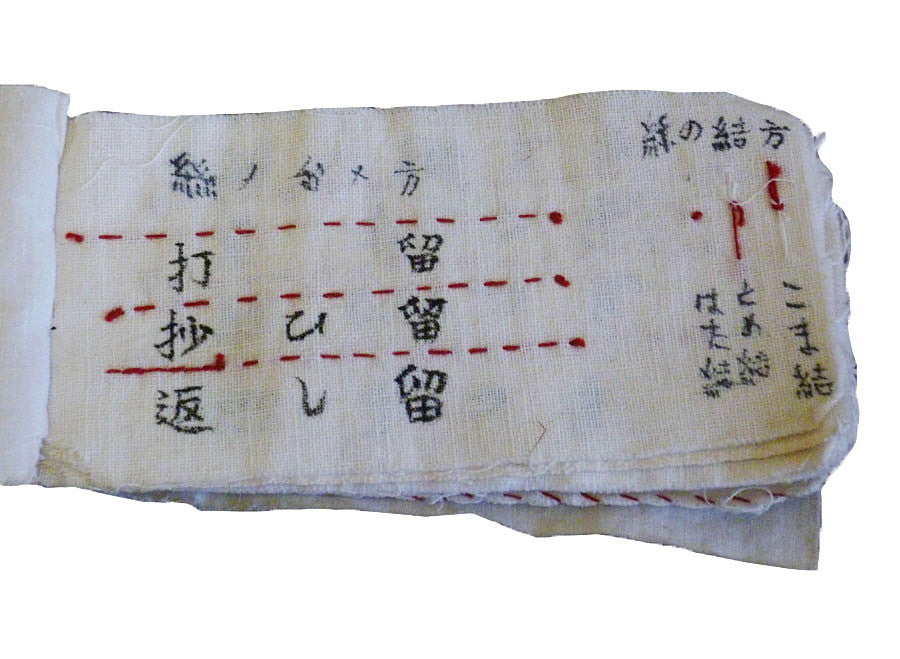 絲の結方
こま結
とめ結
はた結
絲ノメ方
打留
抄ひ留
返し留